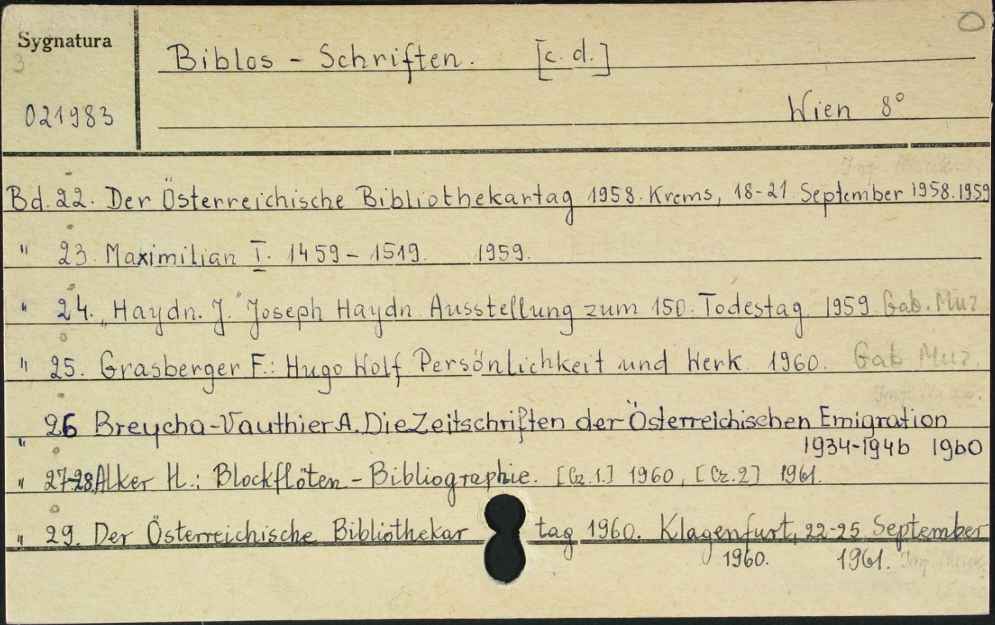 Sygnatura
3
021983
Biblos - Schriften. [c.d.]
Wien 8°
Bd. 22. Der Österreichische Bibliothekartag 1958. Krems, 18-21 September 1958. 1959
" 23. Maximilian I. 1459 - 1519. 1959.
" 24. „Haydn. J." Joseph Haydn Ausstellung zum 150. Todestag 1959. Gab. Muz.
" 25. Grasberger F.: Hugo Wolf Persönlichkeit und Werk. 1960. Gab. Muz.
" 26 Breycha-Vauthier A. Die Zeitschriften der Österreichischen Emigration
1934-1946 1960
" 27-28 Alker H.: Blockflöten - Bibliographie. [Cz. 1.] 1960, [Cz. 2] 1961.
" 29. Der Österreichische Bibliothekar tag 1960. Klagenfurt, 22-25 September
1960. 1961.